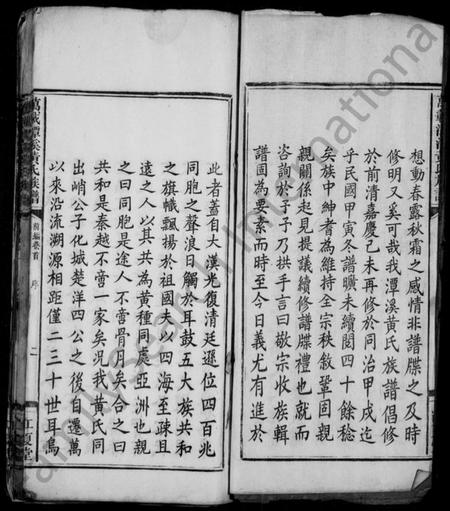 想動春露秋霜之感情非譜牒之及時
修明又奚可哉我潭溪黃氏族譜倡修
於前清嘉慶己未再修於同治甲戌迄
乎民國甲寅冬譜曠未續閱四十餘稔
矣族中紳耆為維持全宗秩敘鞏固親
親關係起見提議續修譜牒禮也就而
咨詢於予予乃拱手言曰敬宗收族輯
譜固為要素而時至今日義尤有進於
此者蓋自大漢光復清廷遜位四百兆
同胞之聲浪日觸於耳鼓五大族共和
之旗幟飄揚於祖國夫以四海至疎且
遠之人以其共為黃種同處亞洲也親
之曰同胞是途人不啻骨肉矣合之曰
共和是秦越不啻一家矣況我黃氏同
出峭公子化城楚洋四公之後自遷萬
以來沿流溯源相距僅二三十世耳烏
萬載潭溪黃氏族譜
前編卷首
序
二
江夏堂
Family Search International